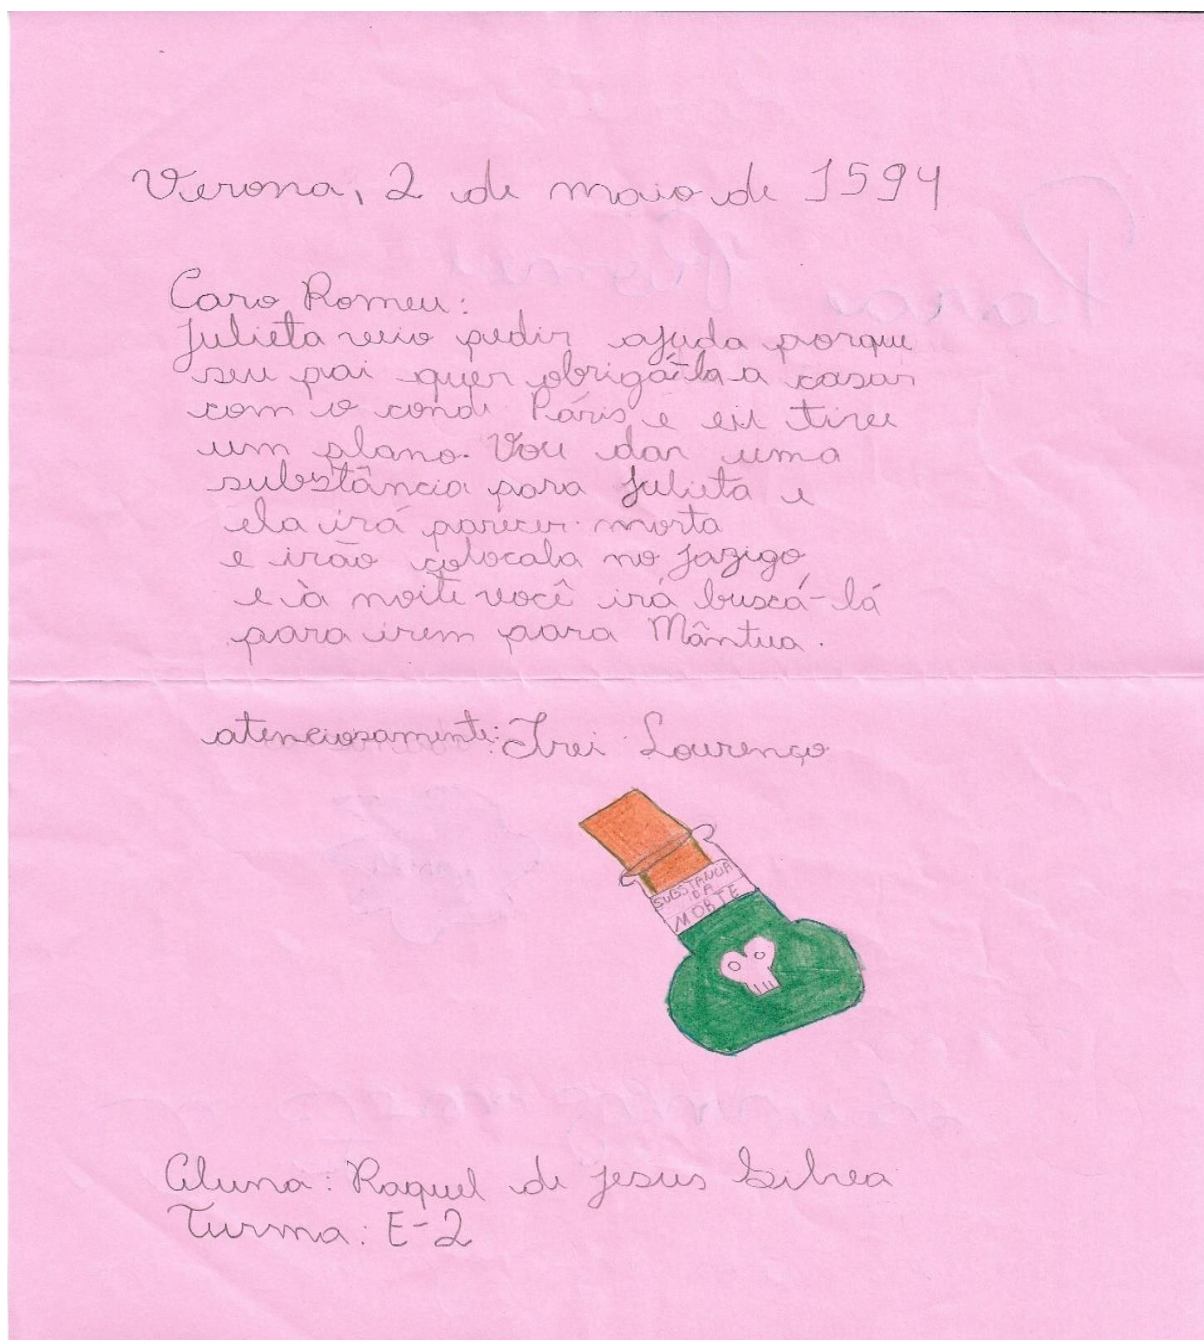 Verona, 2 de maio de 1594
Caro Romeu:
Julieta veio pedir ajuda porque
seu pai quer obrigá-la a casar
com o conde Páris e eu tive
um plano. Vou dar uma
substância para Julieta e
ela irá parecer morta
e irão colocala no jazigo
e à noite você irá buscá-lá
para irem para Mântua.
atenciosamente: Frei Lourenço
SUBSTANCIA
DA
MORTE
Aluna: Raquel de Jesus
Turma: E-2